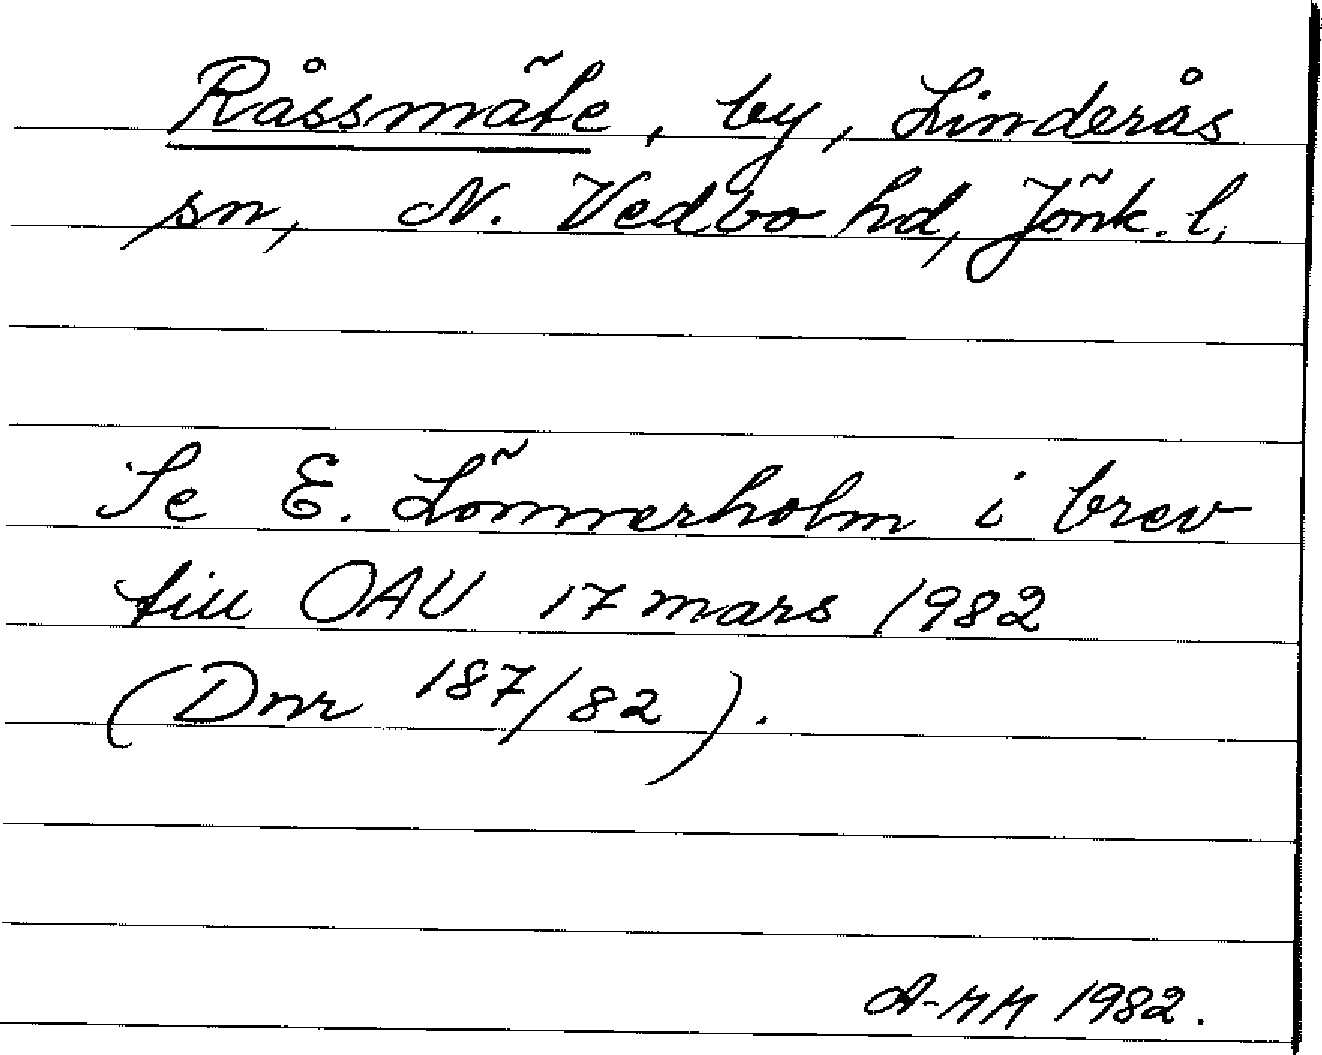 Råssmäte, by, Linderås
sn, N. Vedbo hd, Jönk. l.
Se E. Lönnerholm i brev
till OAU 17 mars 1982
(Dnr 187/82).
1982.